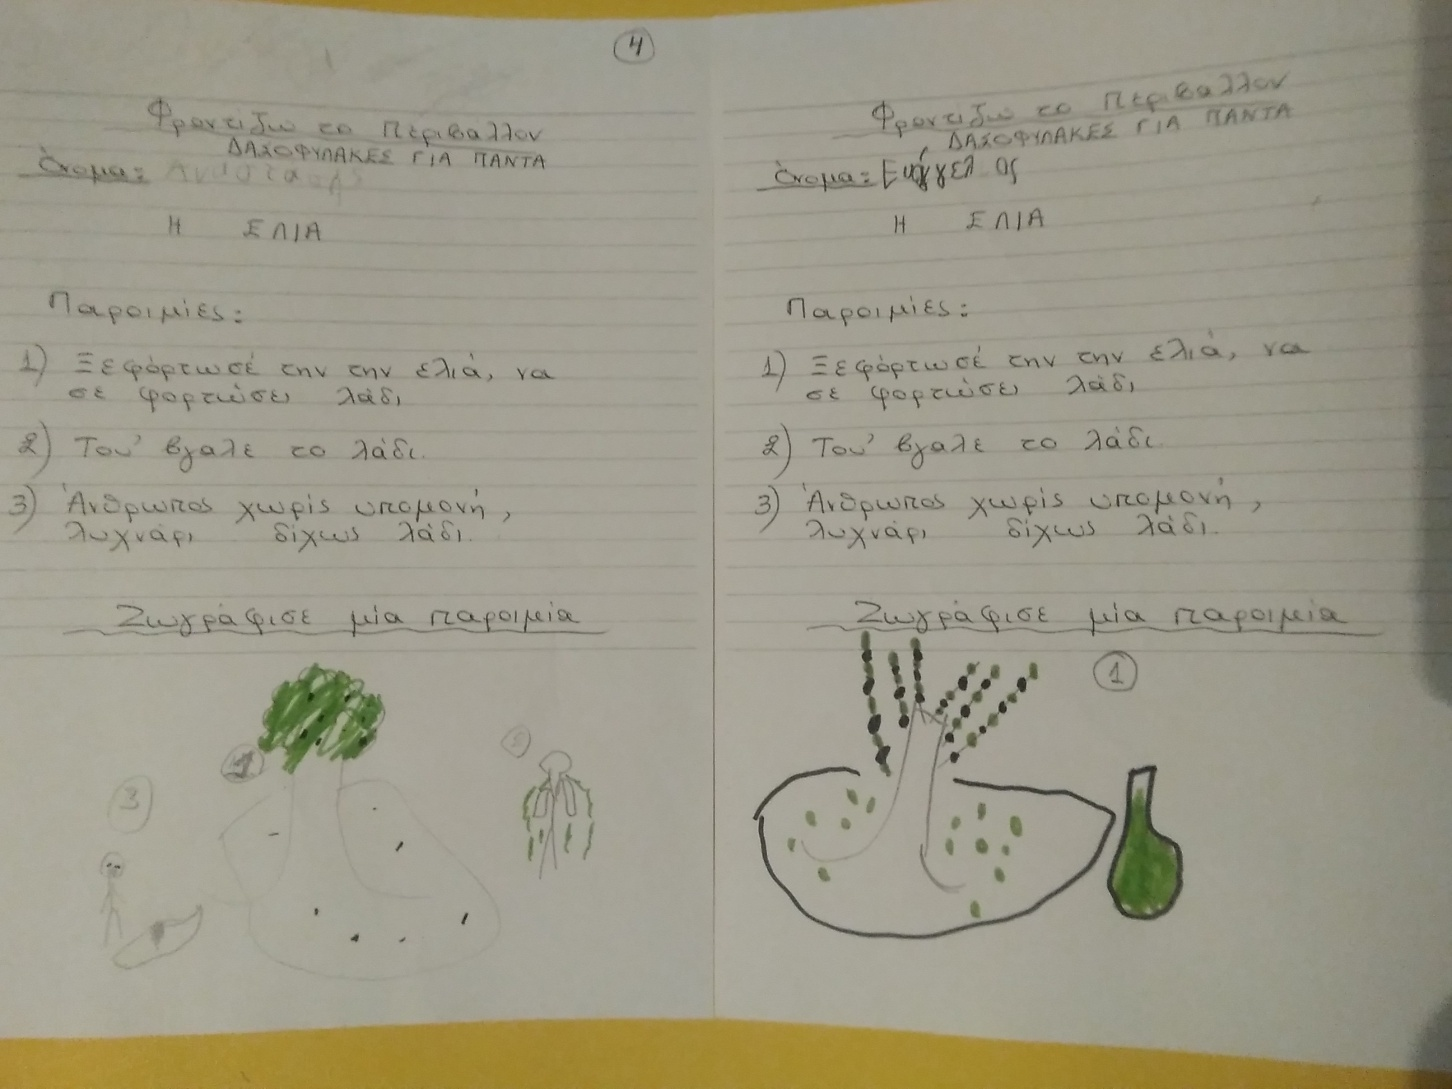 4
Φροντίζω το Περιβαλλον
ΔΑΣΟΦΥΛΑΚΕΣ ΓΙΑ ΠΑΝΤΑ
Όνομα:
Η ΕΛΙΑ
Παροιμίες:
1) Ξεφόρτωσέ την την ελιά, να
σε φορτώσει λάδι
2) Του' βγαλε το λάδι.
3) Άνθρωπος χωρίς υπομονή,
λυχνάρι δίχως λάδι.
Ζωγράφισε μία παροιμία
3
Φροντίζω το Περιβαλλον
ΔΑΣΟΦΥΛΑΚΕΣ ΓΙΑ ΠΑΝΤΑ
Όνομα:
Η ΕΛΙΑ
Παροιμίες:
1) Ξεφόρτωσέ την την ελιά, να
σε φορτώσει λάδι
2) Του' βγαλε το λάδι
3) Άνθρωπος χωρίς υπομονή,
λυχνάρι δίχως λάδι.
Ζωγράφισε μία παροιμία
1